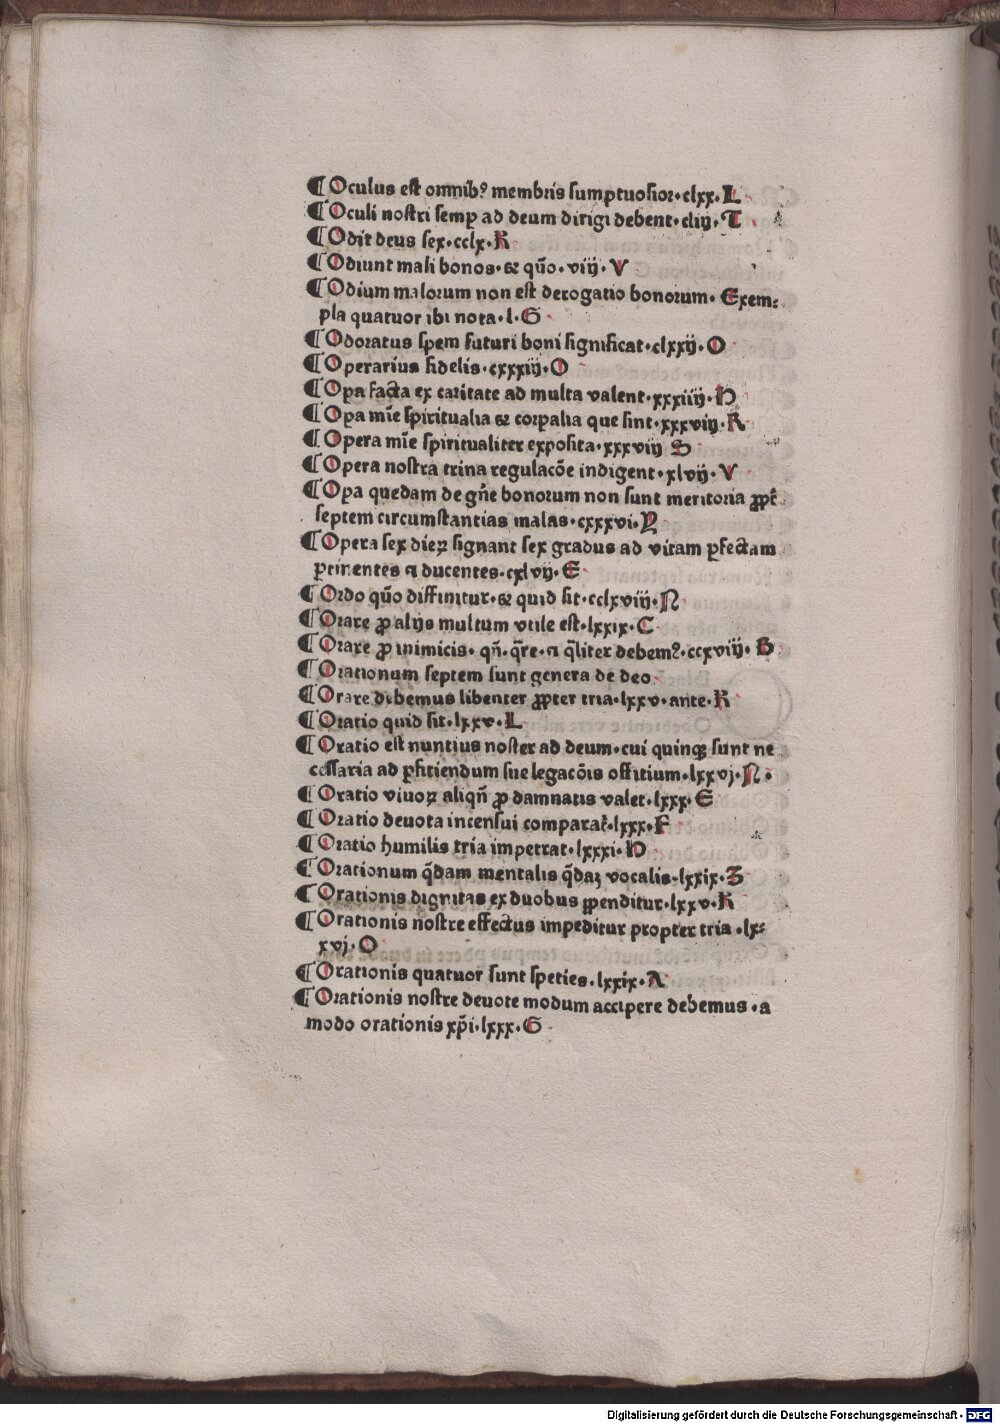 ¶ Oculus est omnibꝰ membris sumptuosior·clxx·L
¶ Oculi nostri semꝑ ad deum dirigi debent·cliij·T
¶ Odit deus sex·cclx·K
¶ Odiunt mali bonos·⁊ quo̅·viij·V
¶ Odium malorum non est derogatio bonorum·Exem⸗
pla quatuor ibi nota·l·G
¶ Odoratus spem futuri boni significat·clxxij·O
¶ Operarius fidelis·cxxxiij·O
¶ Opa facta ex caritate ad multa valent·xxxiiij·H
¶ Opa mi̅e spiritualia ⁊ corpalia que sint·xxxviij·R
¶ Opera mi̅e spiritualiter exposita·xxxviij S
¶ Opera nostra trina regulaco̅e indigent·xlvij·V
¶ Opa quedam de gn̅e bonorum non sunt meritoria ꝓpt̕
septem circumstantias malas·cxxxvi·Y
¶ Opera sex dieꝝ signant sex gradus ad vitam ꝑfectam
ꝑtinentes ⁊ ducentes·cxlvij·E
¶ Ordo quo̅ diffinitur·⁊ quid sit·cclxviij·N
¶ Orare ꝓ alijs multum vtile est·lxxix·C
¶ Orare ꝓ inimicis·qn̅·q̅re·⁊ q̅liter debemꝰ·ccxviij·B
¶ Orationum septem sunt genera de deo
¶ Orare debemus libenter ꝓpter tria·lxxv·ante·K
¶ Oratio quid sit·lxxv·L
¶ Oratio est nuntius noster ad deum·cui quinqꝫ sunt ne
cessaria ad ꝑfitiendum sue legaco̅is offitium·lxxvj·N·
¶ Oratio viuoꝝ aliqn̅ ꝓ damnatis valet·lxxx·E
¶ Oratio deuota incensui comparat̕·lxxx·F
¶ Oratio humilis tria impetrat·lxxxi·H
¶ Orationum q̅dam mentalis q̅daꝫ vocalis·lxxix·Z
¶ Orationis dignitas ex duobus ꝓpenditur·lxxv·K
¶ Orationis nostre effectus impeditur propter tria·lx⸗
xvj·O
¶ Orationis quatuor sunt speties·lxxix·A
¶ Orationis nostre deuote modum accipere debemus·a
modo orationis xp̅i·lxxx·G
Digitalisierung gefördert durch die Deutsche Forschungsgemeinschaft - DFG